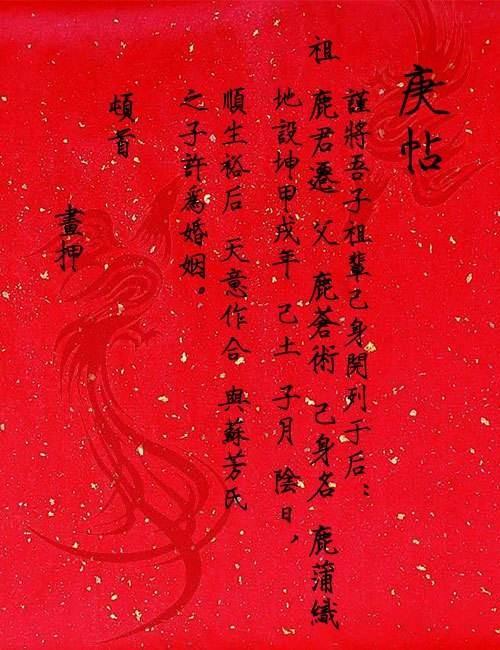 庚帖
謹將吾子祖輩己身開列于后：
祖 鹿君遷 父 鹿蒼術 己身名 鹿蒲孅
地設坤甲戌年 己土 子月 陰日，
順生裕后 天意作合 與蘇芳氏
之子許爲婚姻。
頓首
畫押